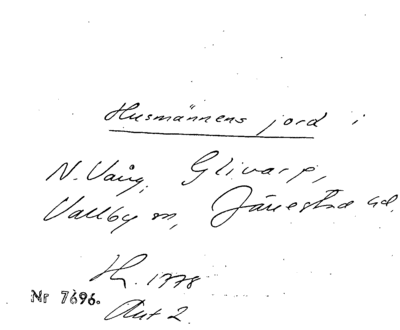 Husmännens jord i
N. Vång, Glivarp,
Vallby m, Järrestad hd.
H. 1778
Nr 7696.
Aut 2